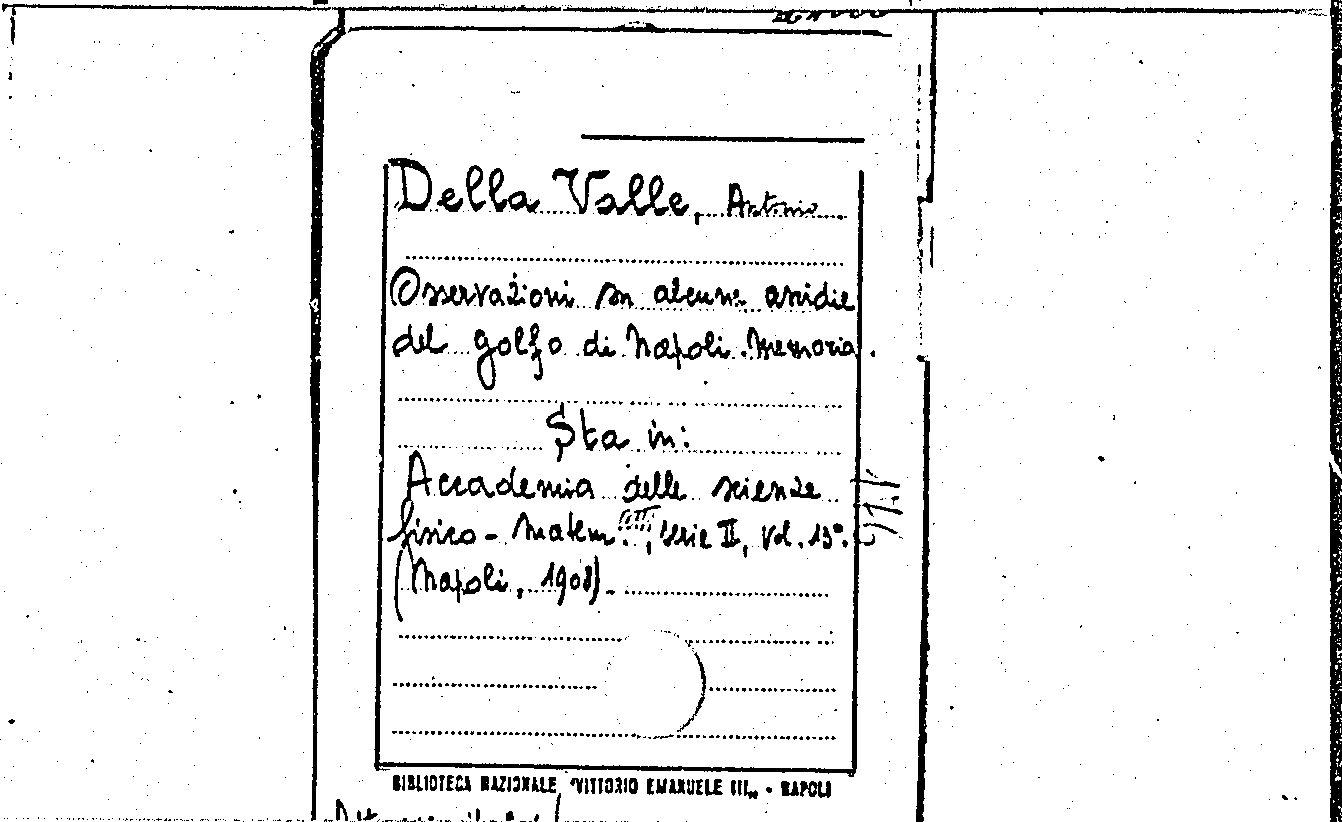 Della Valle, Antonio
Osservazioni su alcune asidie
del golfo di Napoli. Memoria.
Sta in:
Accademia delle scienze
fisico - matem. Atti, serie II, Vol. 13º.
(Napoli, 1908).
BIBLIOTECA NAZIONALE "VITTORIO EMANUELE III„ - NAPOLI